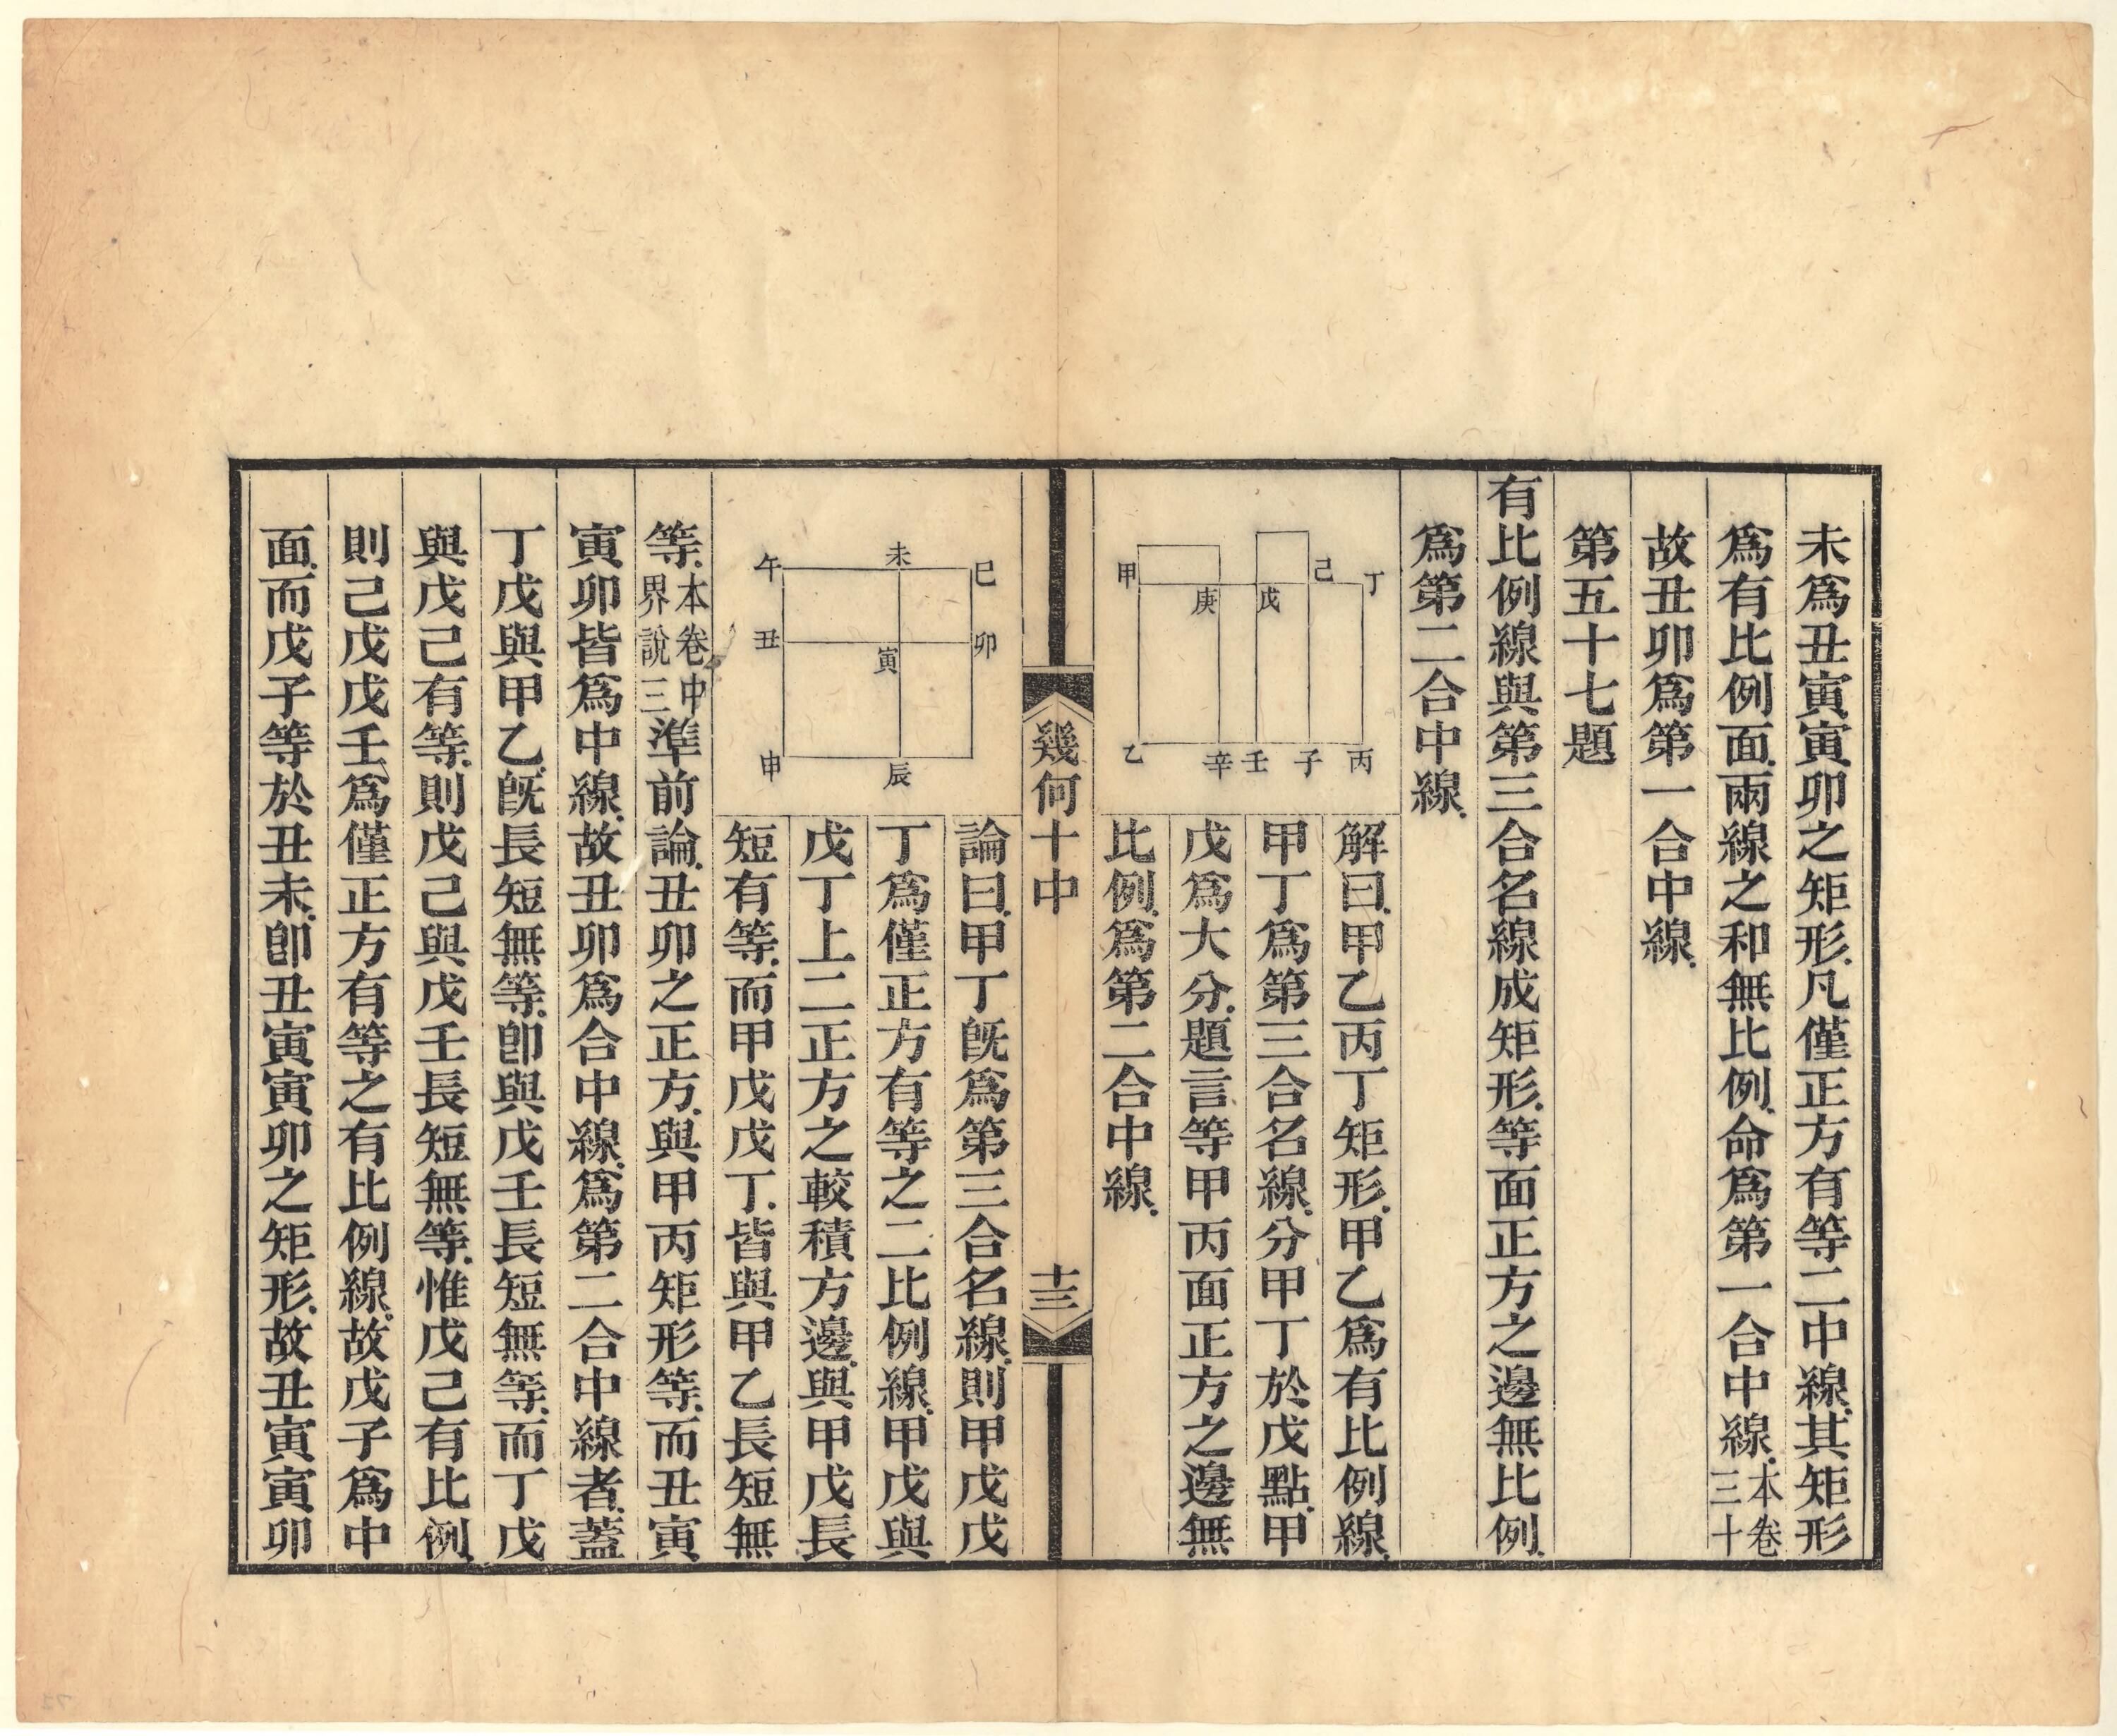 未爲丑寅寅卯之矩形.凡僅正方有等二中線.其矩形
爲有比例面.兩線之和無比例.命爲第一合中線.本卷三十
故丑卯爲第一合中線.
第五十七題
有比例線與第三合名線成矩形.等面正方之邊無比例.
爲第二合中線.
甲
庚
戊
己
丁
乙
辛
壬
子
丙
解曰.甲乙丙丁矩形.甲乙爲有比例線.
甲丁爲第三合名線.分甲丁於戊點.甲
戊爲大分.題言等甲丙面正方之邊無
比例.爲第二合中線.
幾何十中
十三
午
未
巳
丑
寅
卯
申
辰
論曰.甲丁旣爲第三合名線.則甲戊戊
丁爲僅正方有等之二比例線.甲戊與
戊丁上二正方之較積方邊.與甲戊長
短有等.而甲戊戊丁.皆與甲乙長短無
等.本卷中界說三準前論.丑卯之正方.與甲丙矩形等.而丑寅
寅卯皆爲中線.故丑卯爲合中線.爲第二合中線者.蓋
丁戊與甲乙.旣長短無等.卽與戊壬長短無等.而丁戊
與戊己有等.則戊己與戊壬長短無等.惟戊己有比例.
則己戊戊壬爲僅正方有等之有比例線.故戊子爲中
面.而戊子等於丑未.卽丑寅寅卯之矩形.故丑寅寅卯